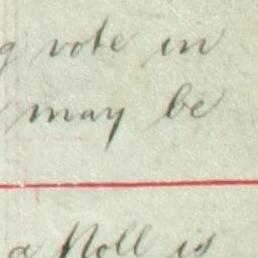 vote in
may be
a Poll is